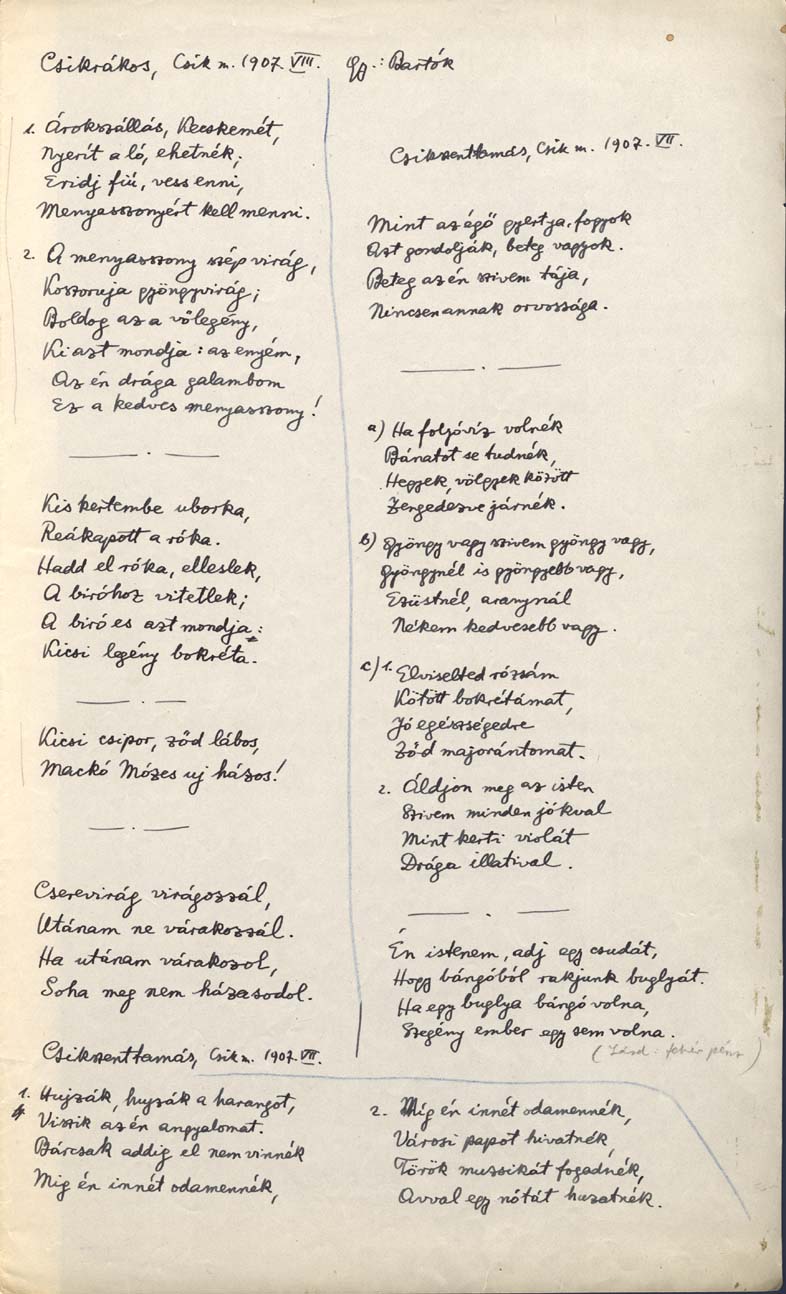 Csikrákos, Csik m. 1907. VIII.
Gy.: Bartók
1. Árokszállás, Kecskemét,
Nyerít a ló, ehetnék;
Eridj fiú, vess enni,
Menyasszonyért kell menni.
2. A menyasszony szép virág,
Koszoruja gyöngyvirág;
Boldog az a vőlegény,
Ki azt mondja: az enyém,
Az én drága galambom
Ez a kedves menyasszony!
Kis kertembe uborka,
Reákapott a róka.
Hadd el róka, elleslek,
A biróhoz vitetlek;
A biró es azt mondja:
Kicsi legény bokréta.
Kicsi csipor, ződ lábos,
Mackó Mózes uj házos!
Cserevirág virágozzál,
Utánam ne várakozzál.
Ha utánam várakozol,
Soha meg nem házasodol.
Csikszenttamás, Csik m. 1907. VII.
Mint az égő gyertya, fogyok
Azt gondolják, beteg vagyok.
Beteg az én szivem tája,
Nincsen annak orvossága.
a) Ha folyóvíz volnék
Bánatot se tudnék,
Hegyek, völgyek között
Zengedezve járnék.
b) Gyöngy vagy szivem gyöngy vagy,
Gyöngynél is gyöngyebb vagy,
Ezüstnél, aranynál
Nékem kedvesebb vagy.
c) 1. Elviselted rózsám
Kötött bokrétámat,
Jó egészségedre
Ződ majorántomat.
2. Áldjon meg az isten
Szivem minden jókval
Mint kerti violát
Drága illatival.
Én istenem, adj egy csudát,
Hogy bángóból rakjunk buglyát.
Ha egy buglya bángó volna,
Szegény ember egy sem volna.
(Lásd: fehér pénz)
Csikszenttamás, Csik m. 1907. VII.
1. Hujzák, hujzák a harangot,
Viszik az én angyalomat.
Bárcsak addig el nem vinnék
Mig én innét odamennék,
2. Mig én innét odamennék,
Városi papot hivatnék,
Török muzsikát fogadnék,
Avval egy nótát huzatnék.